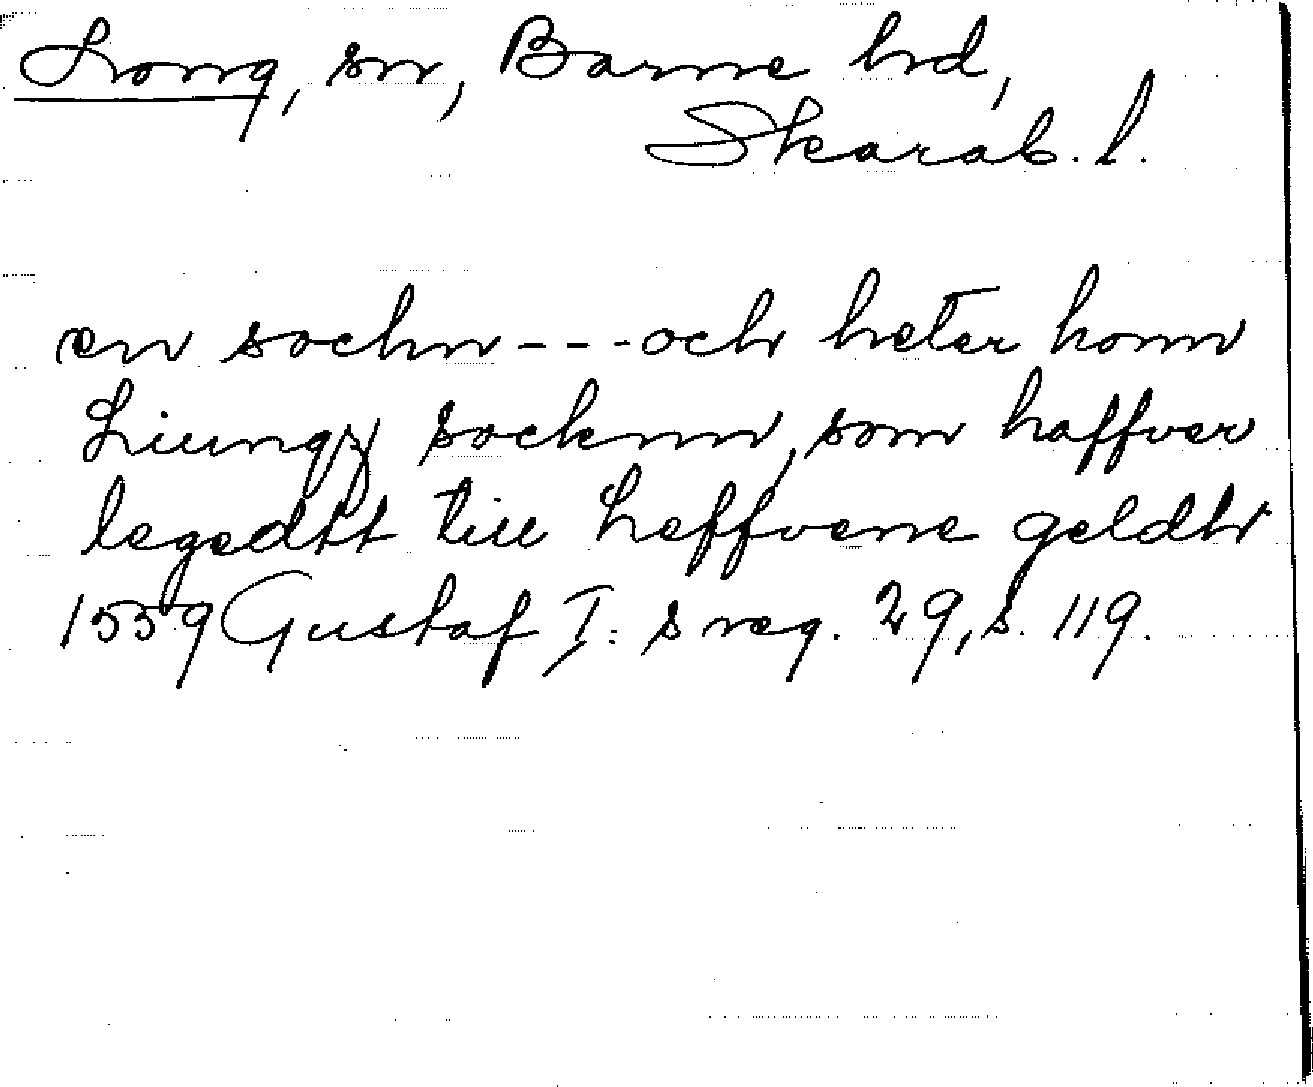 Long, sn, Barne hd,
Skarab. l.
en sochn---och heter honn
Liungz socknn, som haffver
legedtt till Leffvene geldh
1559 Gustaf I: s reg. 29, s. 119.